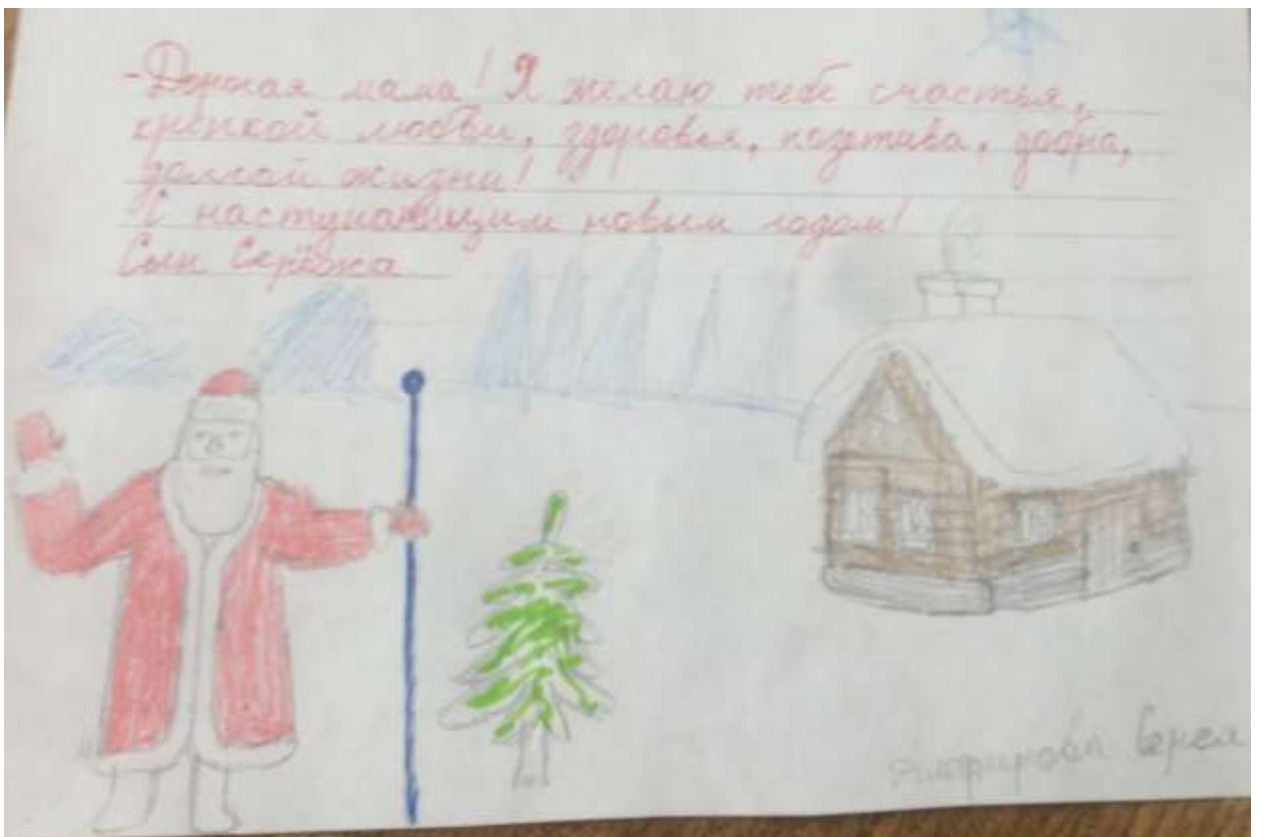 - Дорогая мама! Я желаю тебе счастья,
крепкой любви, здоровья, позитива, добра,
долгой жизни!
С наступающим новым годом!
Сын Серёжа